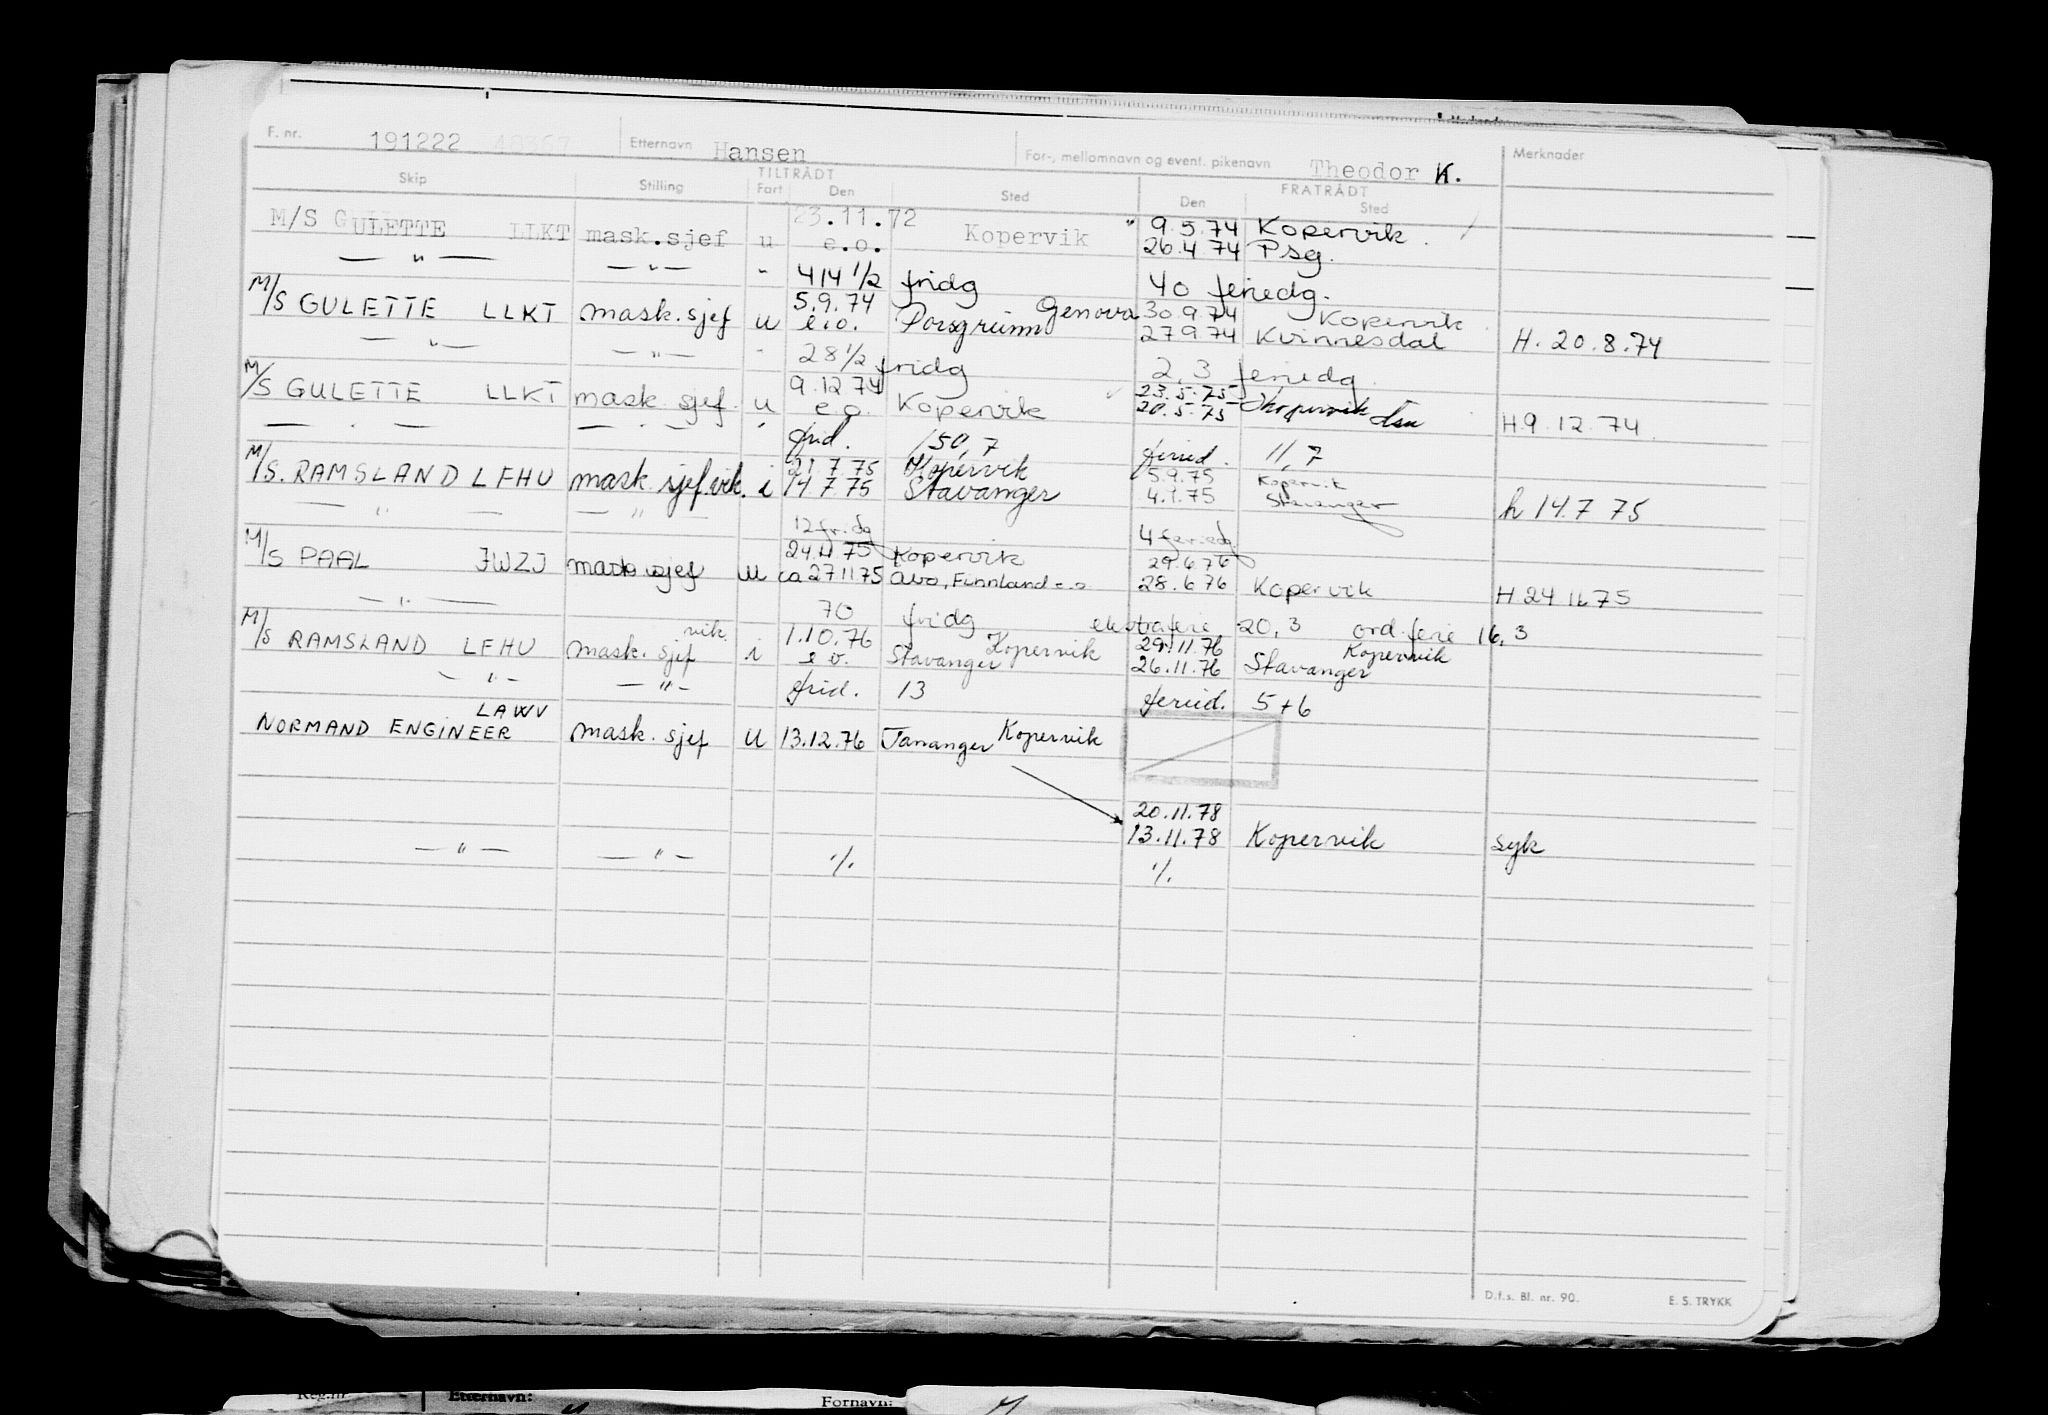 F. nr. 191222 Etternavn Hansen For-, mellomnavn og event. pikenavn Theodor K. Merknader
Skip Stilling TILTRÅDT Fart Den Sted FRATRÅDT Den Sted
M/S GULETTE LLKT mask.sjef u 23.11.72 e.o. Kopervik " 9.5.74 Kopervik
26.4.74 Psg.
— " — — " — " 414 1/2 fridg 40 feriedg.
M/S GULETTE LLKT mask.sjef u 5.9.74 e.o. Porsgrunn Genova 30.9.74 Kopervik
27.9.74 Kvinnesdal H. 20.8.74
— " — — " — " 28 1/2 fridg 2,3 feriedg.
M/S GULETTE LLKT mask sjef. u 9.12.74 e.o. Kopervik 23.5.75 Kopervik
20.5.75 H.9.12.74.
— " — — " — " frid. 150,7 feried. 11,7
M/S. RAMSLAND LFHU mask.sjef.vik. i 21.7.75 Kopervik 5.9.75 Kopervik
14 7 75 Stavanger 4.9.75 Stavanger h 14.7 75
— " — — " — 12 fridg 4 feriedg
M/S PAAL JWZJ sjef u 24.11.75 Kopervik 29.6.76
ca 27 11 75 Åbo, Finnland e.o 28.6.76 Kopervik H 24 11.75
— " — 70 fridg ekstraferie 20,3 ord.ferie 16,3
M/S RAMSLAND LFHU mask. sjef vik i 1.10.76 e o. Stavanger Kopervik 29.11.76 Kopervik
26.11.76 Stavanger
— " — — " — frid. 13 feried. 5+6
LAWV
NORMAND ENGINEER mask. sjef u 13.12.76 Tananger Kopervik
20.11.78
13.11.78 Kopervik syk
— " — — " — ./. ./.
D.f.s. Bl. nr. 90. E. S. TRYKK
Reg.nr. Etternavn: Fornavn: